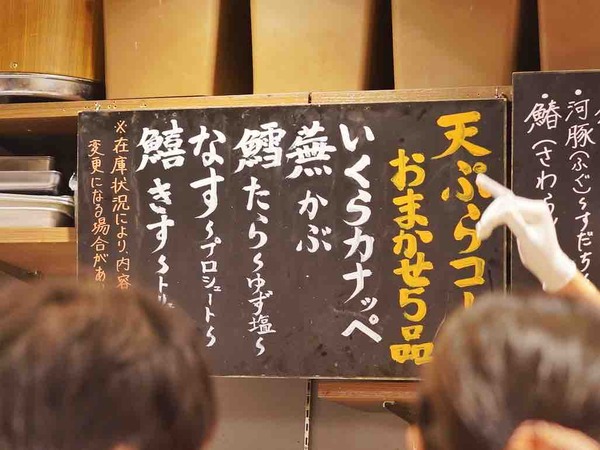 天ぷらコー
おまかせ5品
いくらカナッペ
蕪かぶ
鱈たら～ゆず塩～
なす～プロシュート～
鱚きす～トリュ
※在庫状況により、内容
変更になる場合があ
・河豚(ふぐ)～すだち
・鰆(さわら)